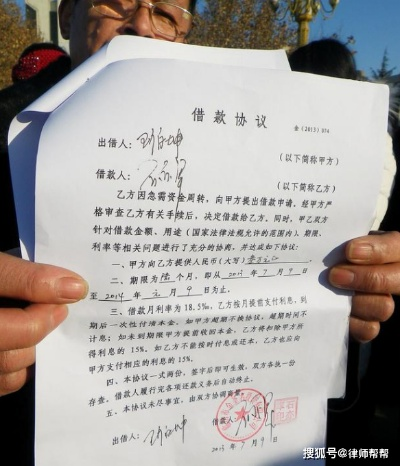 借款协议
金(2013)074
出借人:
(以下简称甲方)
借款人:
(以下简称乙方)
乙方因急需资金周转,向甲方提出借款申请,经甲方严
格审查乙方有关手续后,决定借款给乙方。同时,甲乙双方
针对借款金额、用途(国家法律法规允许的范围内)、期限、
利率等相关问题进行了充分的协商,并达成如下协议:
一、甲方向乙方提供人民币(大写)
二、期限为陆个月,即从2013年7月9日
至2014年元月9日为止。
三、借款月利率为18.5‰,乙方按月提前支付利息,到
期后一次性付清本金。如甲方超期不换协议,超期时间不
计息;如未到期限甲方提前收回本金,乙方将扣除甲方所
得利息的15%。如乙方不能按时付息或还本,乙方也应向
甲方支付相应利息的15%。
四、本协议一式两份,签字后即可生效,双方各执一份
存查。借款人履行完各项还款义务后自动终止。
五、本协议未尽事宜,由双方协调
出借人:
借款人:
2013年7月9日
搜狐号@律师帮帮